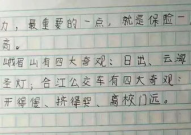 力，最重要的一点，就是保险一
高。
峨眉山有四大奇观：日出、云海
圣灯，合江公交车有四大奇观：
开得慢、挤得狠、离校门远。